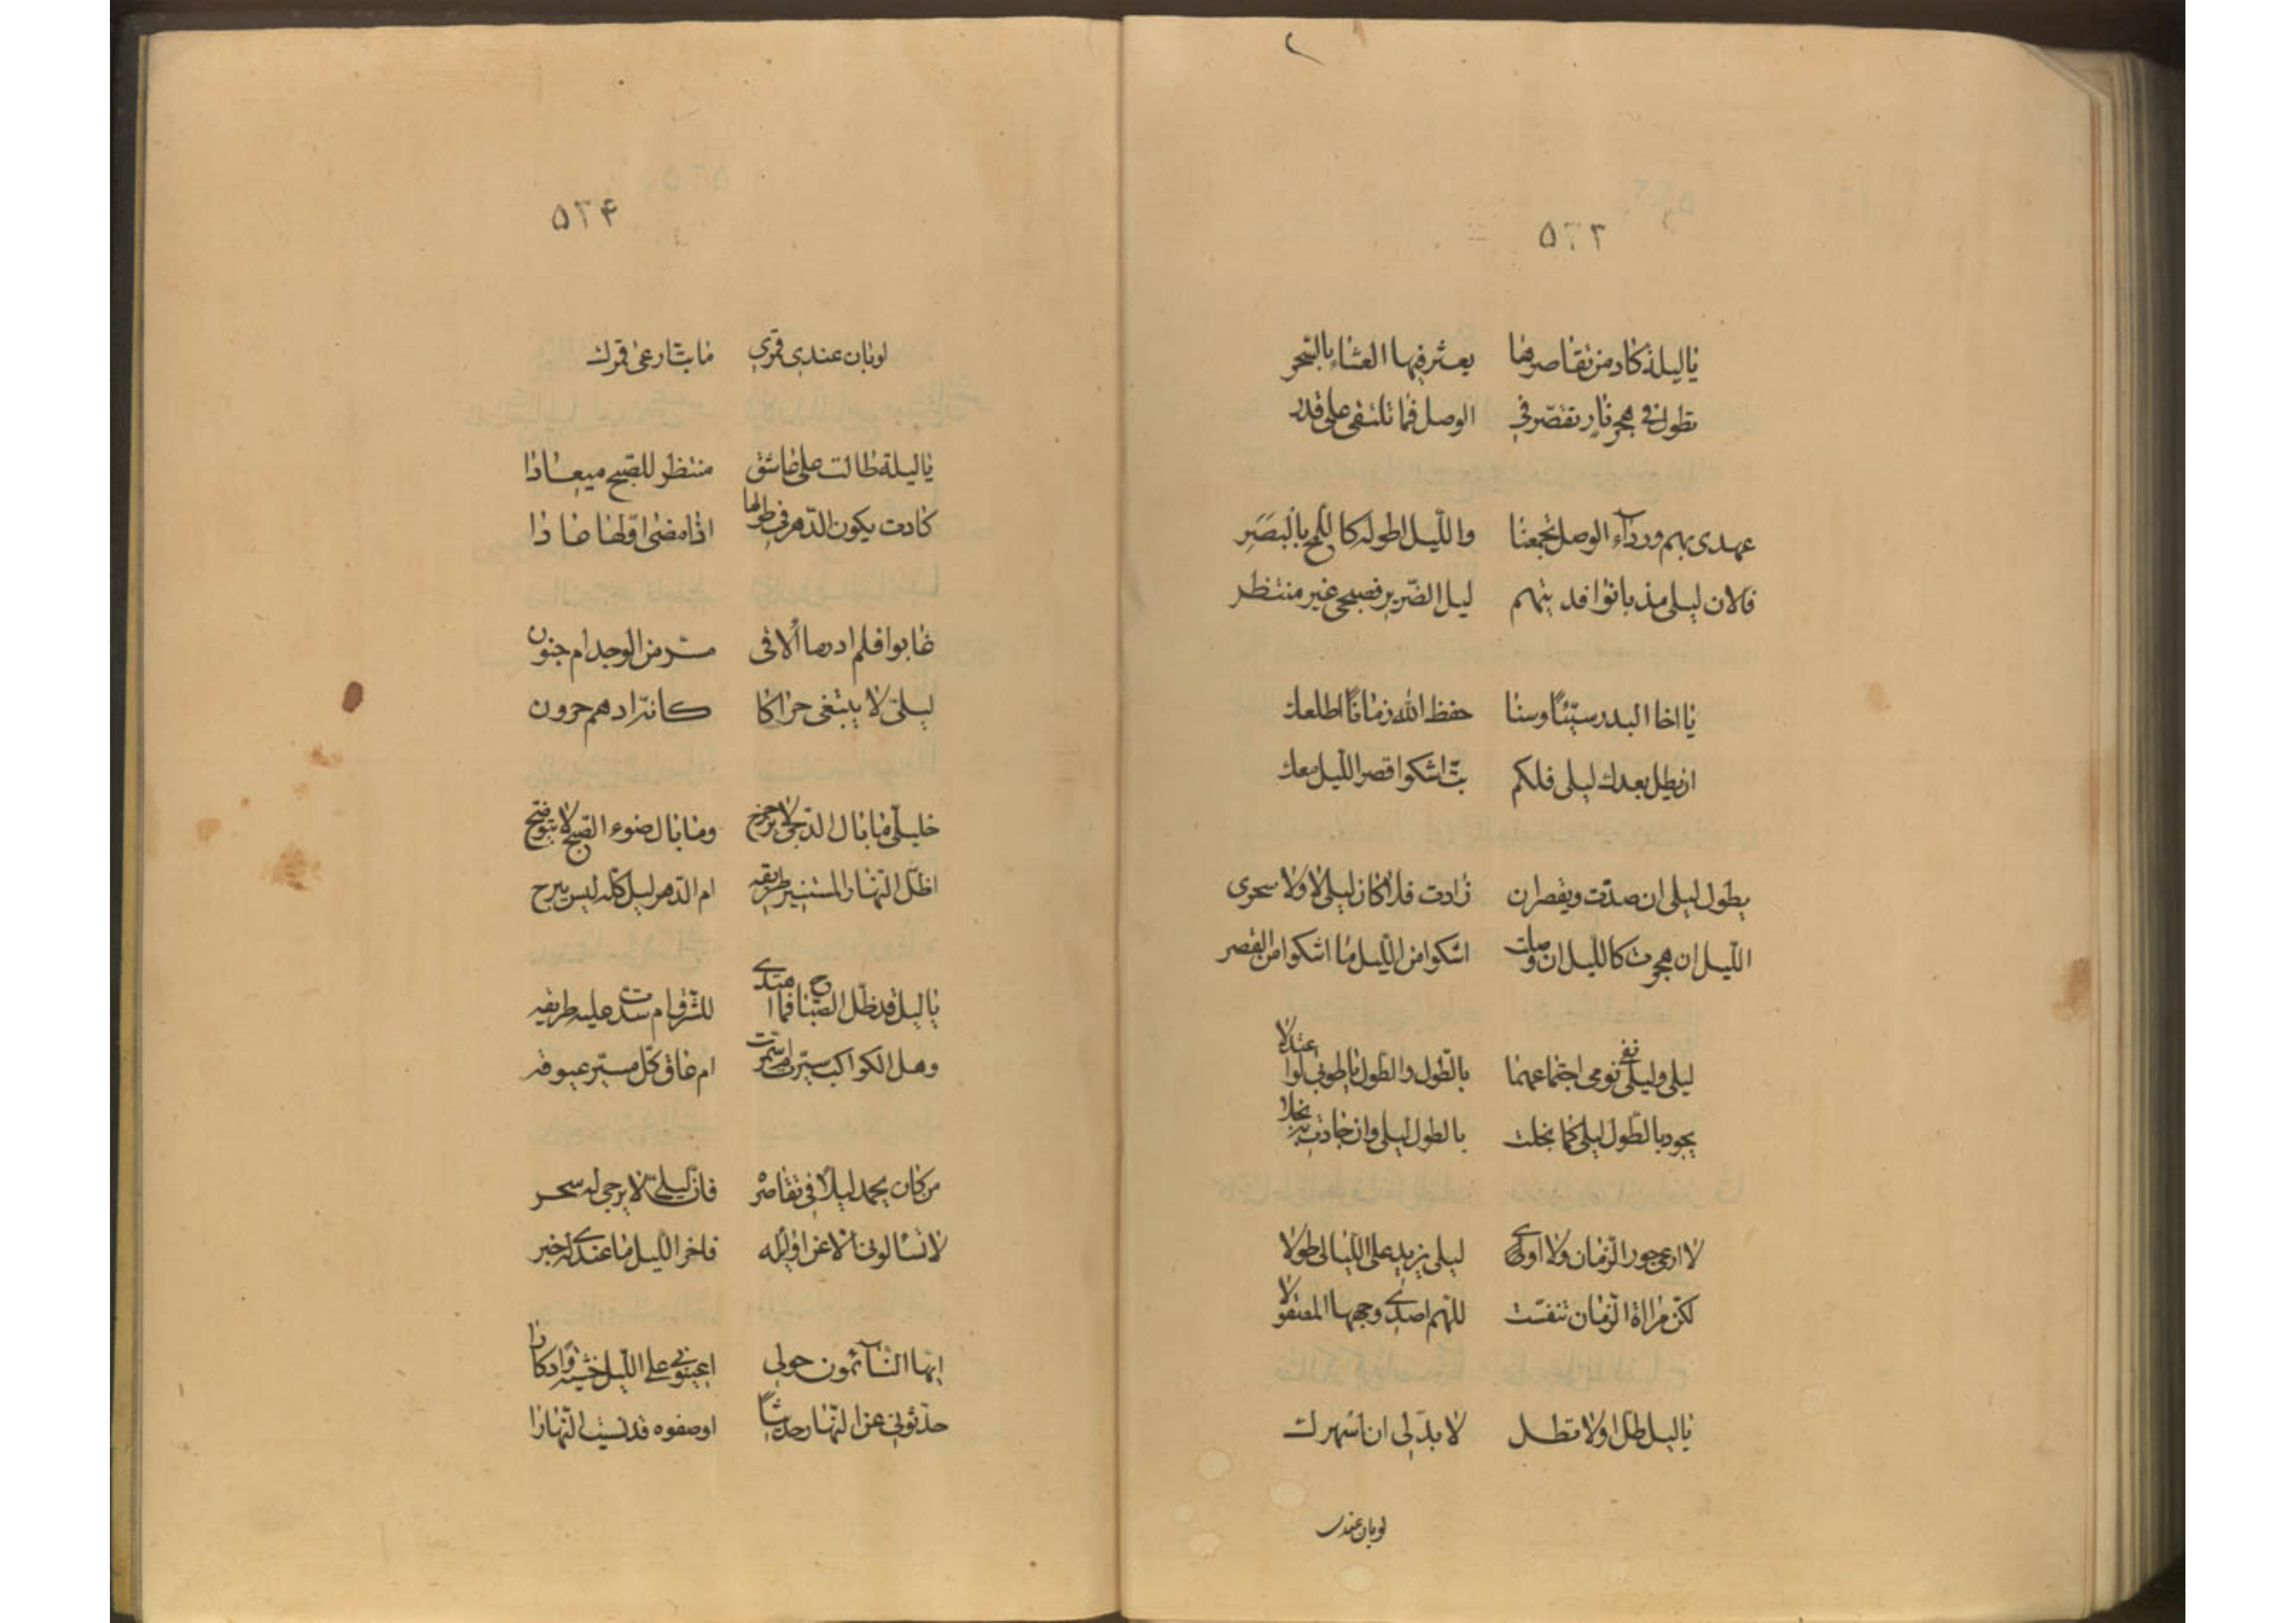 ۵۲۳
يا ليلة كاد من تقاصرها يعثر فيها العشاء بالسّحر
تطول في هجرنا وتقصّر في الوصل فما تلتقي على قدر
عهدي بهم ورداء الوصل يجمعنا والليل اطوله كاللّمح بالبَصَرِ
فالان ليلي مذ بانوا فديتهم ليل الضّرير فصبحي غير منتظر
يا اخا البدر سنًا وسنا حفظ الله زمانًا اطلعك
ان يطل بعدك ليلي فلكم بتّ اشكوا قصر اللّيل معك
يطول ليلي ان صدّت ويقصر ان زادت فلا كان ليلي لا ولا سحري
اللّيل ان هجرت كاللّيل ان وصلت اشكوا من اللّيل ما اشكوا من القصر
ليلي وليلى نفى نومي اجتماعهما بالطّول والطّول يا طوبى لو اعتدلا
يجود بالطّول ليلي كما بخلت بالطول ليلى وان جادت به بخلا
لا ادعي جور الزّمان ولا اري ليلي يزيد على اللّيالي طولا
لكنّ مراة الزّمان تنفّست للهم اصدى وجهها المصقولا
يا ليل طل او لا تطل لا بدّ لي ان اسهرك
لو بان عندي
۵۲۴
لو بان عندي قمري ما بتّ ارعى قمرك
يا ليلة طالت على عاشق منتظر للصّبح ميعادا
كادت تكون الدّهر في طولها اذا مضى اوّلها عادا
غابوا فلم ادر ما اُلاقي مسّ من الوجد ام جنون
ليلي لا يبتغي حراكا كانّه ادهم حرون
خليلّي ما بال الدّجى لا يزحزح وما بال ضوء الصّبح لا يتوضّح
اضّل النّهار المستنير طريقه ام الدّهر ليل كلّه ليس يبرح
يا ليل قد ظلّ الصّباح فما اهتدى للشّرق ام سدّت عليه طريقه
وهل الكواكب سيّرت ام سمّرت ام عاق كلّ مسيّر عيوقه
من كان يحمد ليلًا في تقاصره فان ليلي لا يرجى له سحر
لا تسالوني الا عن اوايله فاخر اللّيل ما عندي له خبر
ايّها النّآئمون حولي اعينوني على اللّيل حسبة وادّكارا
حدّثوني عن النّهار حديثًا اوصفوه فقد نسيت النّهارا